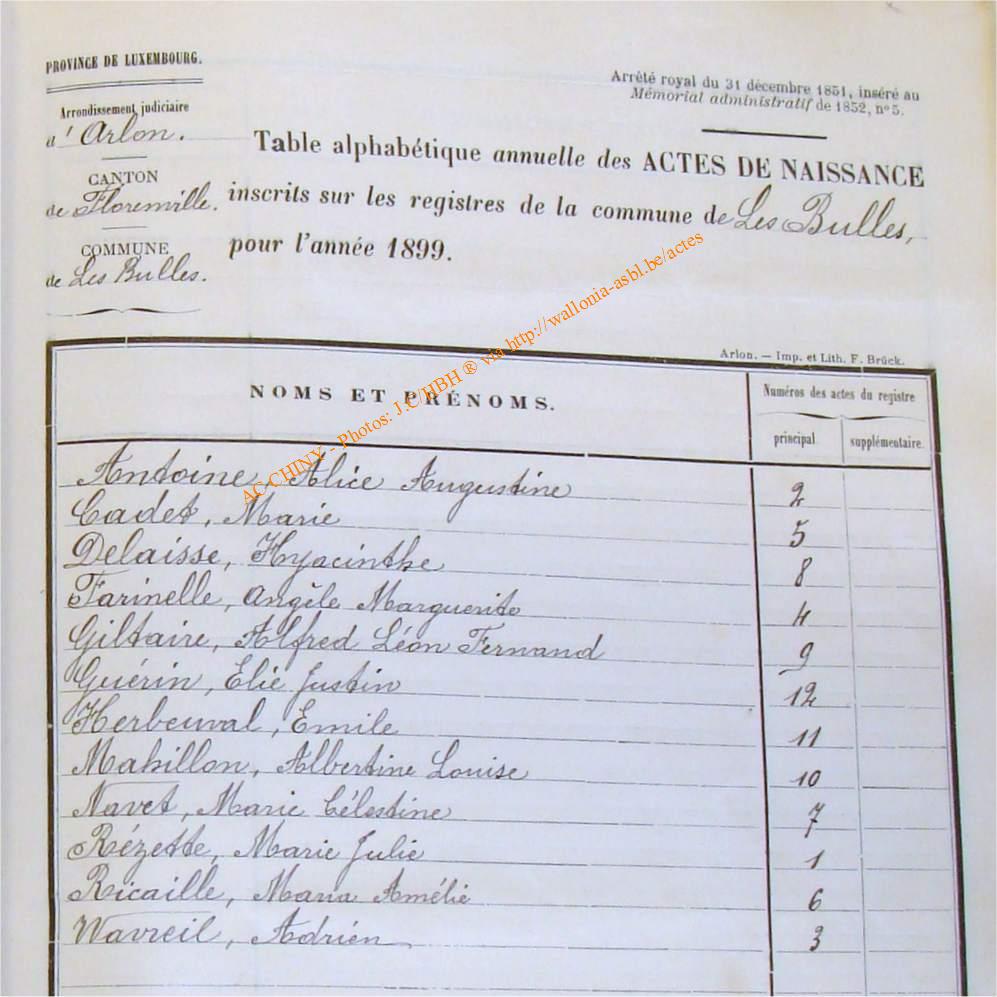 PROVINCE DE LUXEMBOURG.
Arrondissement judiciaire
d'Arlon.
CANTON
de Florenville.
COMMUNE
de Les Bulles.
Arrêté royal du 31 décembre 1851, inséré au
Mémorial administratif de 1852, n° 5.
Table alphabétique annuelle des ACTES DE NAISSANCE
inscrits sur les registres de la commune de Les Bulles,
pour l'année 1899.
AC-CHINY - Photos: J.C/HBH ® via http://wallonia-asbl.be/actes
Arlon. — Imp. et Lith. F. Brück.
NOMS ET PRÉNOMS.
Numéros des actes du registre
principal supplémentaire.
Antoine, Alice Augustine 2
Cadet, Marie 5
Delaisse, Hyacinthe 8
Farinelle, Angèle Marguerite 4
Giltaire, Alfred Léon Fernand 9
Guérin, Elie Justin 12
Herbeuval, Emile 11
Mahillon, Albertine Louise 10
Navet, Marie Célestine 7
Rézette, Marie Julie 1
Ricaille, Maria Amélie 6
Wavreil, Adrien 3